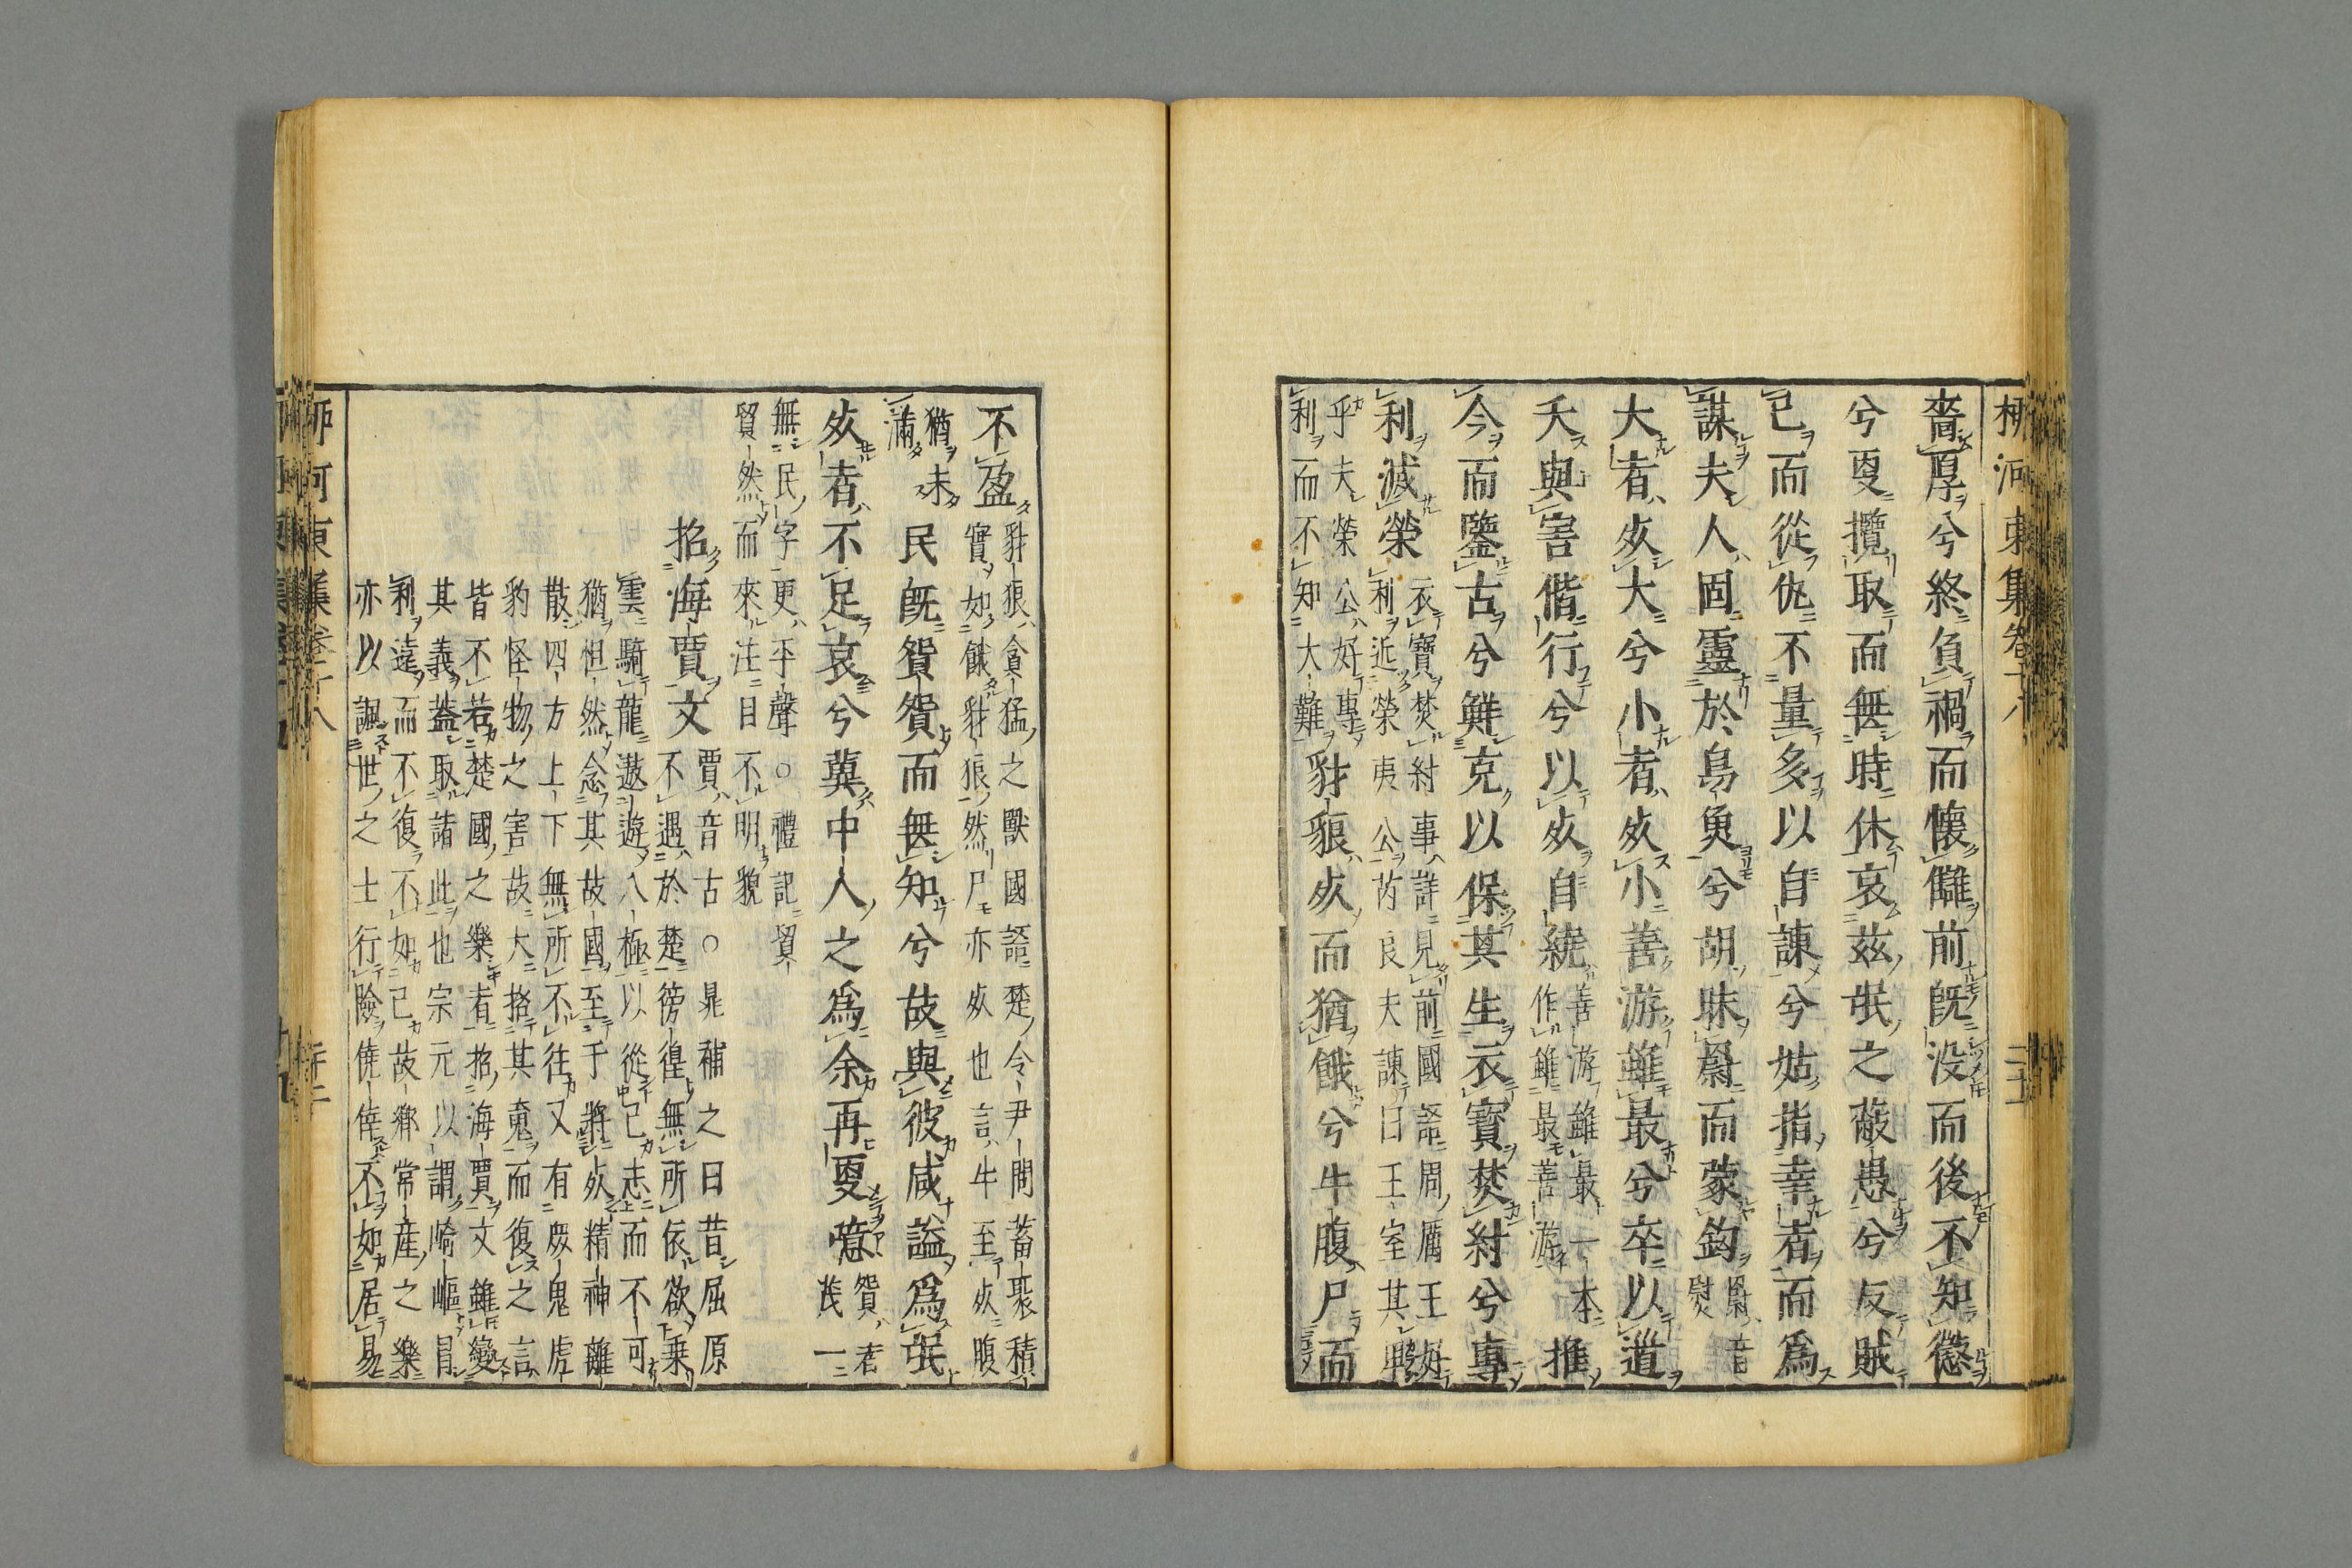 柳河東集卷十八
嗇厚兮終負禍而懷讎前既没而後不知懲
兮更攬取而無時休哀茲氓之蔽愚兮反賊
已而從仇不量多以自諫兮姑指幸者而爲
謀夫人固靈於鳥魚兮胡昧罻而蒙鉤罻音
熨
大者死大兮小者死小善游雖最兮卒以道
夭與害偕行兮以死自繞善游雖最一本
作雖最善游推
今而鑒古兮鮮克以保其生衣寶焚紂兮專
利滅榮衣寶焚紂事詳見前國語周厲王好
利近榮夷公芮良夫諫曰王室其
乎夫榮公好專
利而不知大難豺狼死而猶餓兮牛腹尸而
不盈豺狼貪猛之獸國語楚令尹問蓄聚積
實如餓豺狼然尸亦死也言牛至死腹
猶未
滿民既貿貿而無知兮故與彼咸謚爲氓
死者不足哀兮冀中人之爲余再更噫貿者
茂一
無民字更平聲○禮記貿
貿然而來注目不明貌
招海賈文賈音古○晁補之曰昔屈原
不遇於楚徬徨無所依欲乗
雲騎龍遨遊八極以從己志而不可
猶怛然念其故國至于將死精神離
散四方上下無所不往又有衆鬼虎
豹怪物之害故大招其䰟而復之言
皆不若楚國之樂者招海賈文雖變
其義蓋取諸此也宗元以謂崎嶇冒
利遠而不復不如己故鄉常産之樂
亦以諷世之士行險僥倖不如居易
柳河東集卷十八